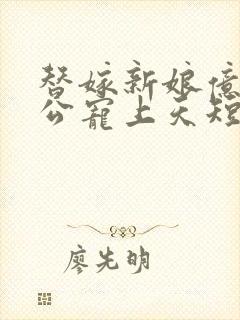 替嫁新娘億
公寵上天短
廖先明